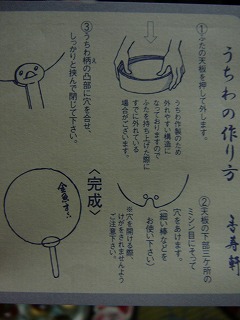 うちわの作り方
壽壽軒
①ふたの天板を押して外します。
うちわ作製のため
外れやすい構造に
なっておりますので
ふたを持ち上げた際に
すでに外れている
場合がございます。
②天板の下部三ケ所の
ミシン目にそって
穴をあけます。
（細い棒などを
お使い下さい）
※穴を開ける際、
けがをされませんよう
ご注意下さい。
③うちわ柄の凸部に穴を合せ、
しっかりと挟んで閉じて下さい。
〈完成〉